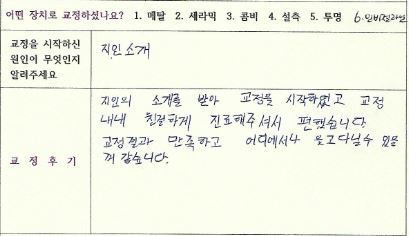 어떤 장치로 교정하셨나요? 1. 메탈 2. 세라믹 3. 콤비 4. 설측 5. 투명 6. 인비절라인
교정을 시작하신
원인이 무엇인지
알려주세요
지인소개
교 정 후 기
지인의 소개를 받아 교정을 시작하였고 교정
내내 친절하게 진료해주셔서 편했습니다
교정결과 만족하고 어디에서나 웃고다닐수 있을
꺼 같습니다.